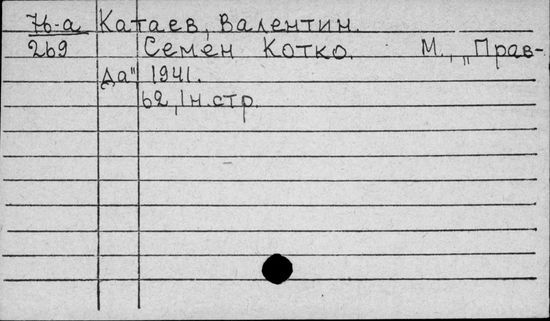 76-а Катаев, Валентин.
269 Семен Котко. М., „Прав-
да“, 1941.
62, 1 н. стр.